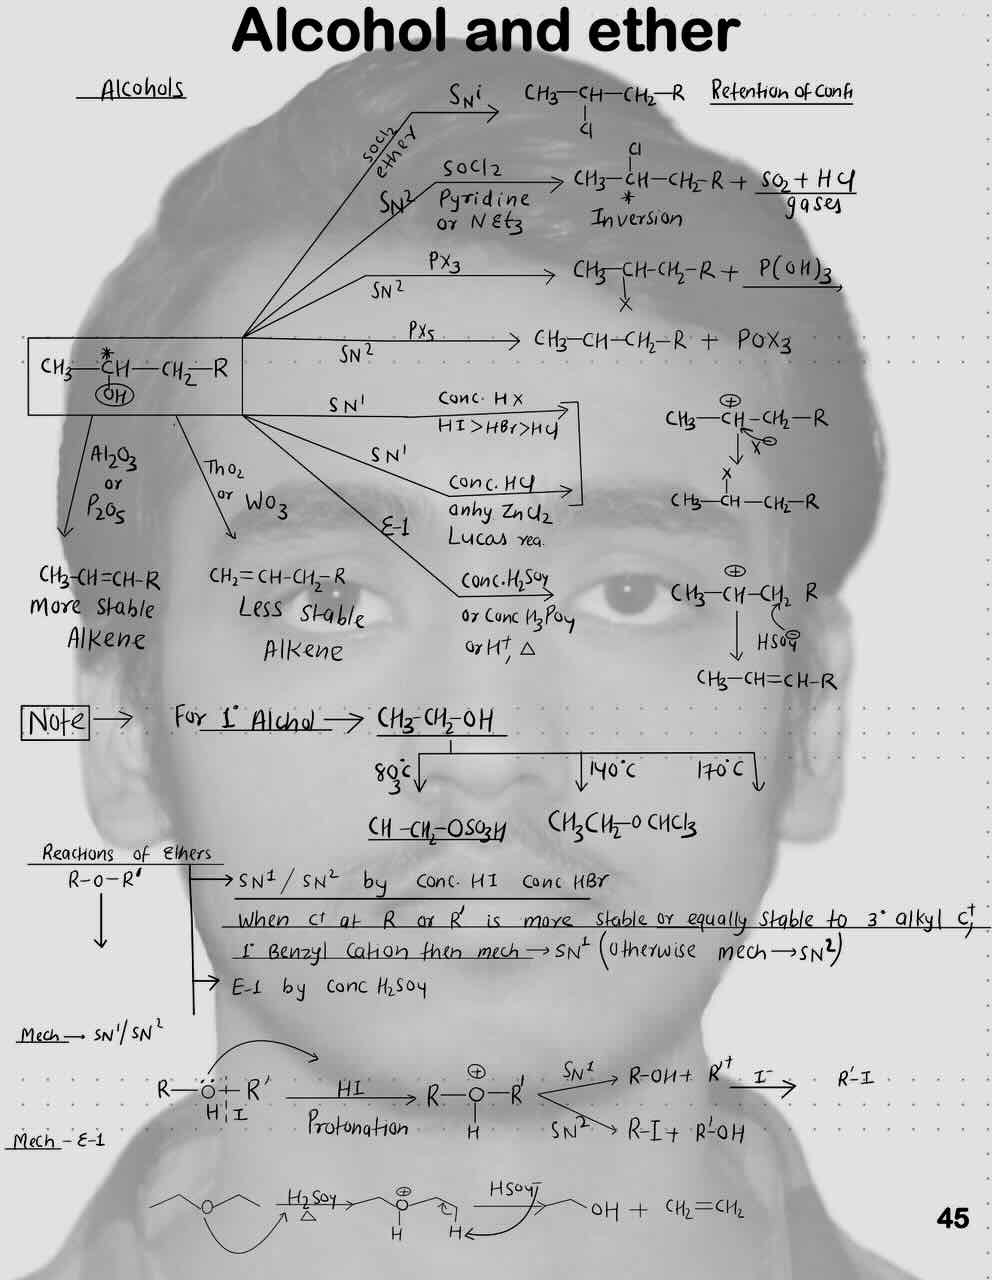 Alcohol and ether
Alcohols
SOCl2
ether
SNi
CH3-CH-CH2-R
Cl
Retention of Confi
SN2
SOCl2
Pyridine
or NEt3
Cl
CH3-CH-CH2-R + SO2 + HCl
*
gases
Inversion
PX3
SN2
CH3-CH-CH2-R + P(OH)3,
X
PX5
SN2
CH3-CH-CH2-R + POX3
*
CH3-CH-CH2-R
OH
SN1
Conc. HX
HI>HBr>HCl
SN1
Conc. HCl
anhy ZnCl2
Lucas rea.
⊕
CH3-CH-CH2-R
X⊖
X
CH3-CH-CH2-R
Al2O3
or
P2O5
ThO2
or WO3
E-1
Conc.H2SO4
or Conc H3PO4
or H+, △
CH3-CH=CH-R
More Stable
Alkene
CH2=CH-CH2-R
Less Stable
Alkene
⊕
CH3-CH-CH2 R
HSO4⊖
CH3-CH=CH-R
Note → For 1° Alchol → CH3-CH2-OH
80°C
140°C
170°C
3
CH -CH2-OSO3H
CH3CH2-O CHCl3
Reactions of Ethers
R-O-R'
SN1/SN2 by Conc. HI Conc HBr
When C+ at R or R' is more stable or equally Stable to 3° alkyl C+,
1° Benzyl Cation then mech → SN1 (Otherwise mech → SN2)
E-1 by Conc H2SO4
Mech → SN1/SN2
R-Ö-R'
H I
HI
Protonation
⊕
R-O-R'
H
SN1
R-OH + R'+
I-
R'-I
SN2
R-I + R'-OH
Mech - E-1
O
H2SO4
△
⊕
O
H
H
HSO4-
OH + CH2=CH2
45